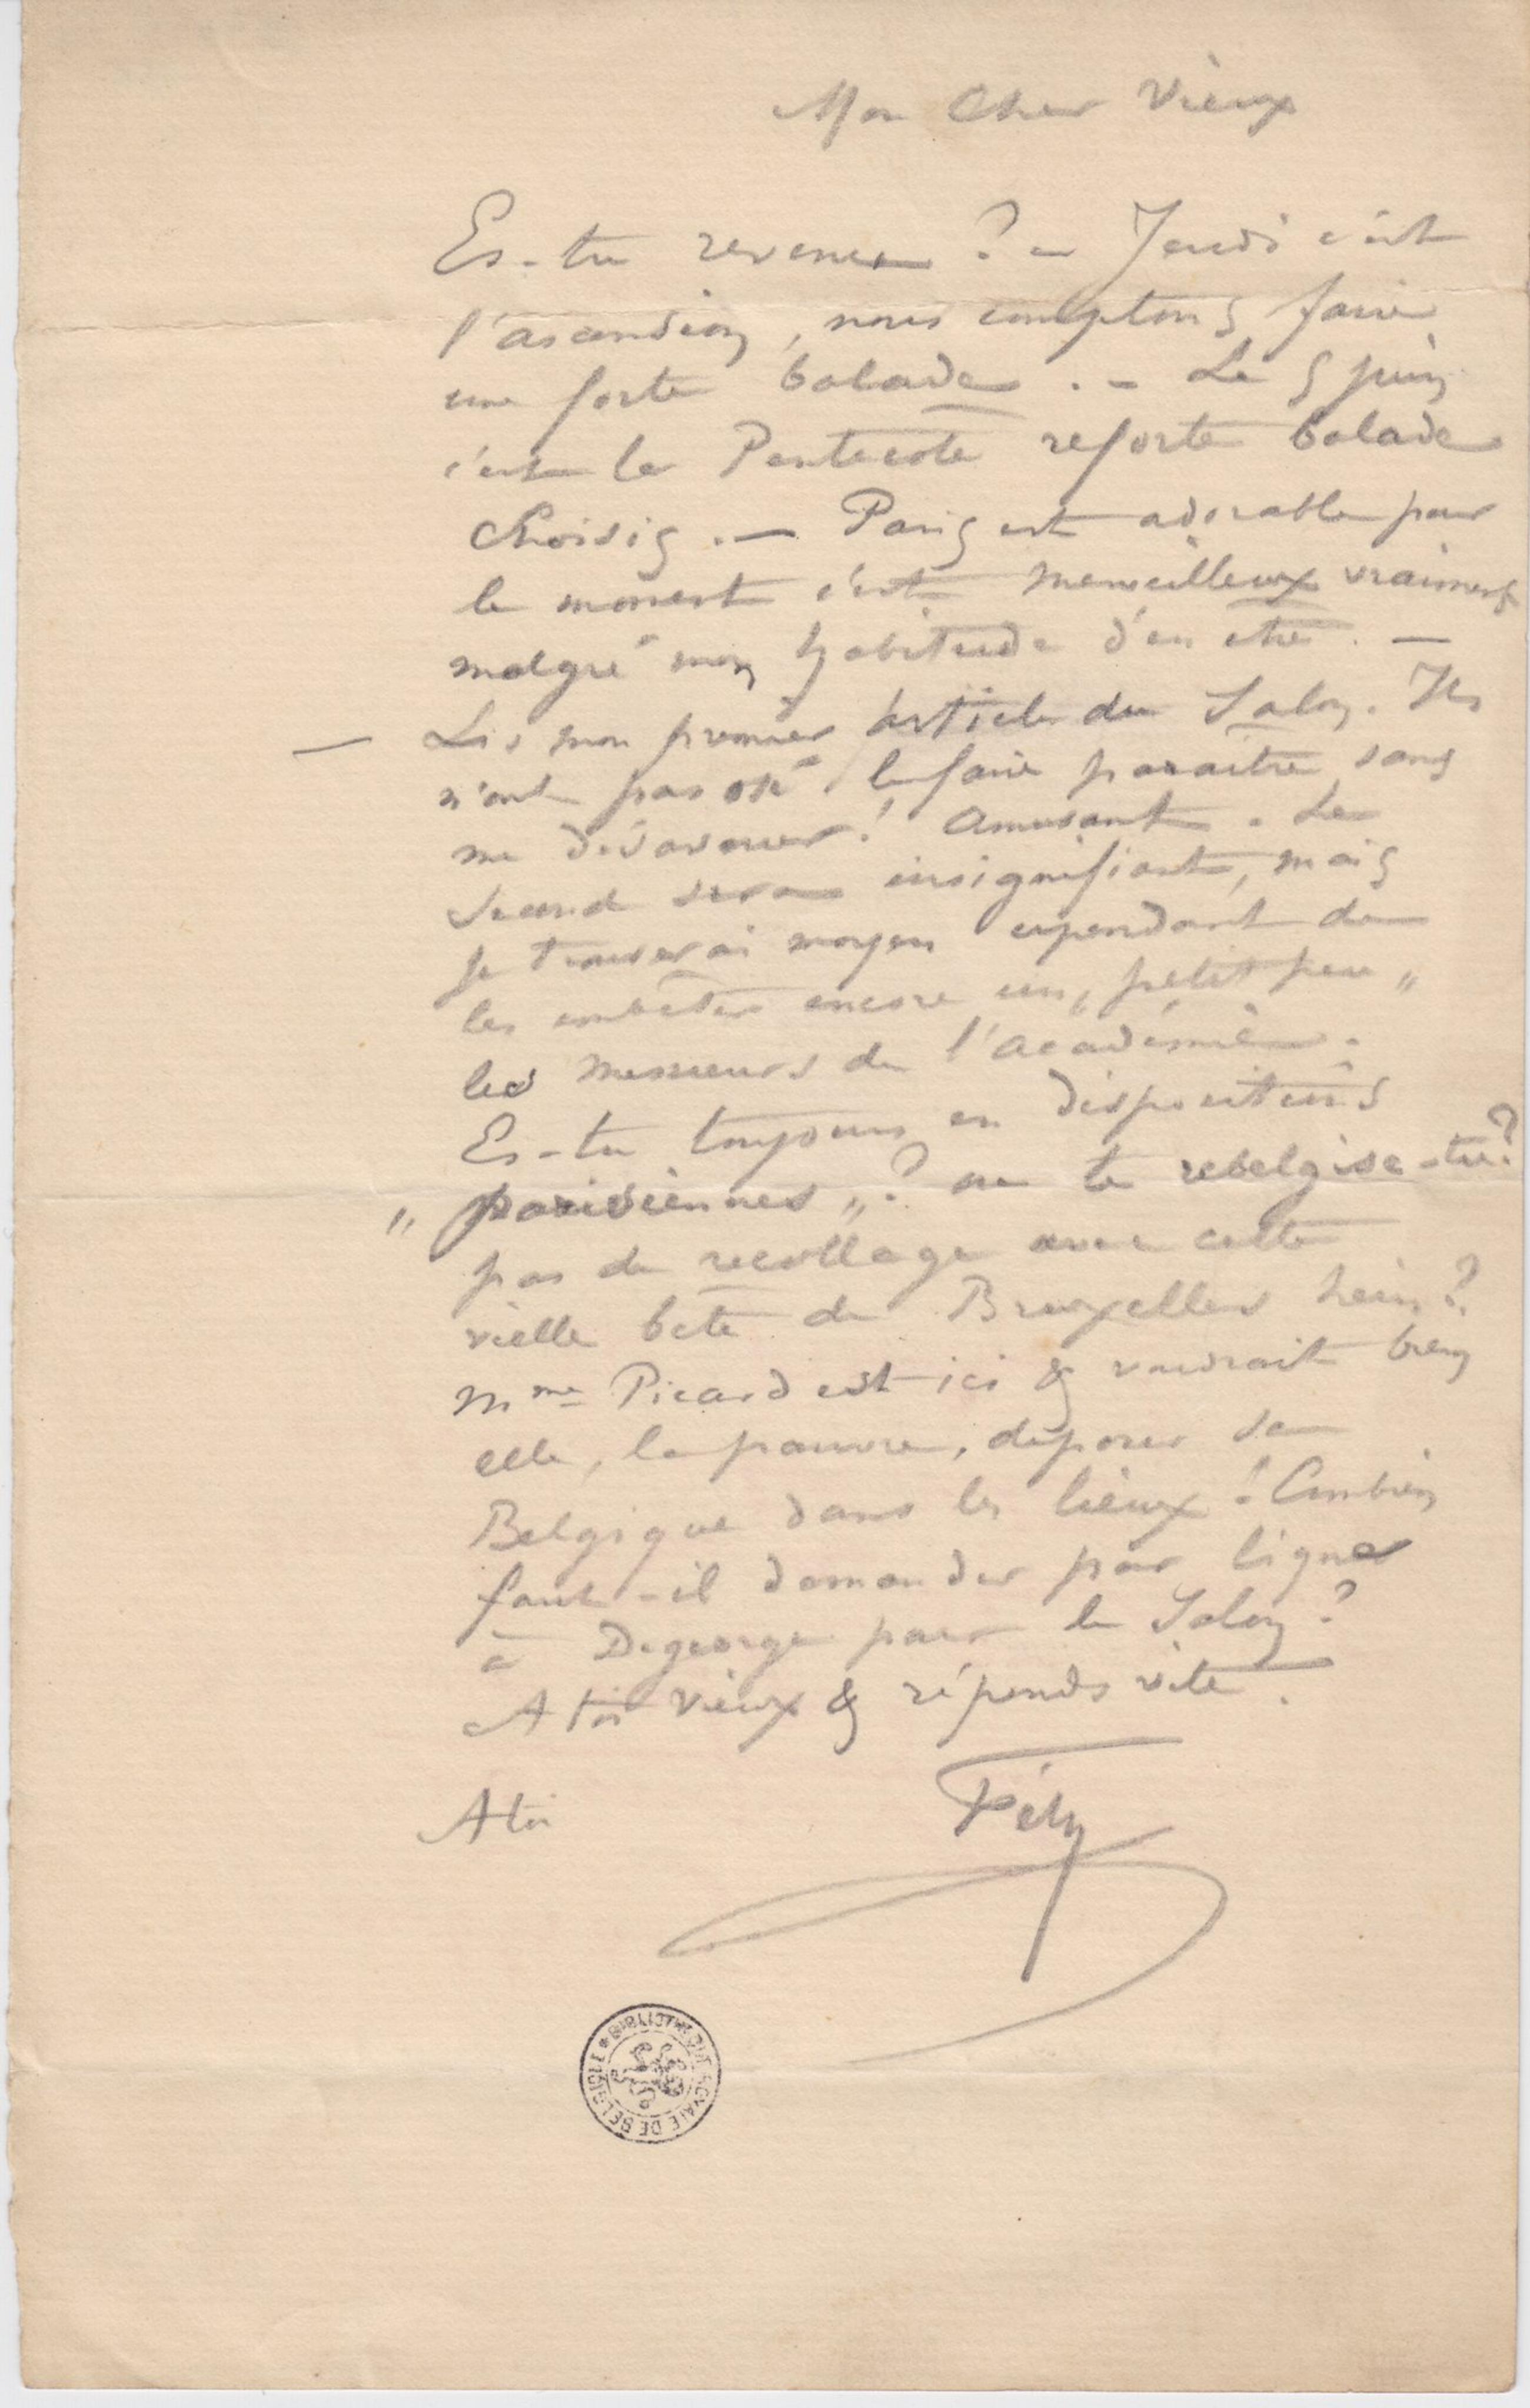 Mon Cher Vieux
Es-tu revenu ? – Jeudi c'est
l'ascension, nous comptons faire
une forte balade . – Le 5 juin
c'est la Pentecote reforte balade
Choisis . – Paris est adorable pour
le moment c'est merveilleux vraiment
malgré mon habitude d'en être . –
— Lis mon premier article du Salon. Ils
n'ont pas osé le faire paraitre sans
me désavouer ! Amusant . Le
second sera insignifiant, mais
je trouverai moyen cependant de
les embeter encore un „ petit peu „
les messieurs de l'Académie .
Es-tu toujours en dispositions
„ parisiennes „ ? ou te rebelgise-tu ?
pas de recollage avec cette
vielle bête de Bruxelles hein ?
Mme Picard est ici & voudrait bien
elle, la pauvre, déposer sa
Belgique dans les lieux ! Combien
faut-il demander par ligne
à Degeorge pour le Salon ?
A toi vieux & réponds vite .
A toi
Fély
BIBLIOTHEQUE ROYALE DE BELGIQUE